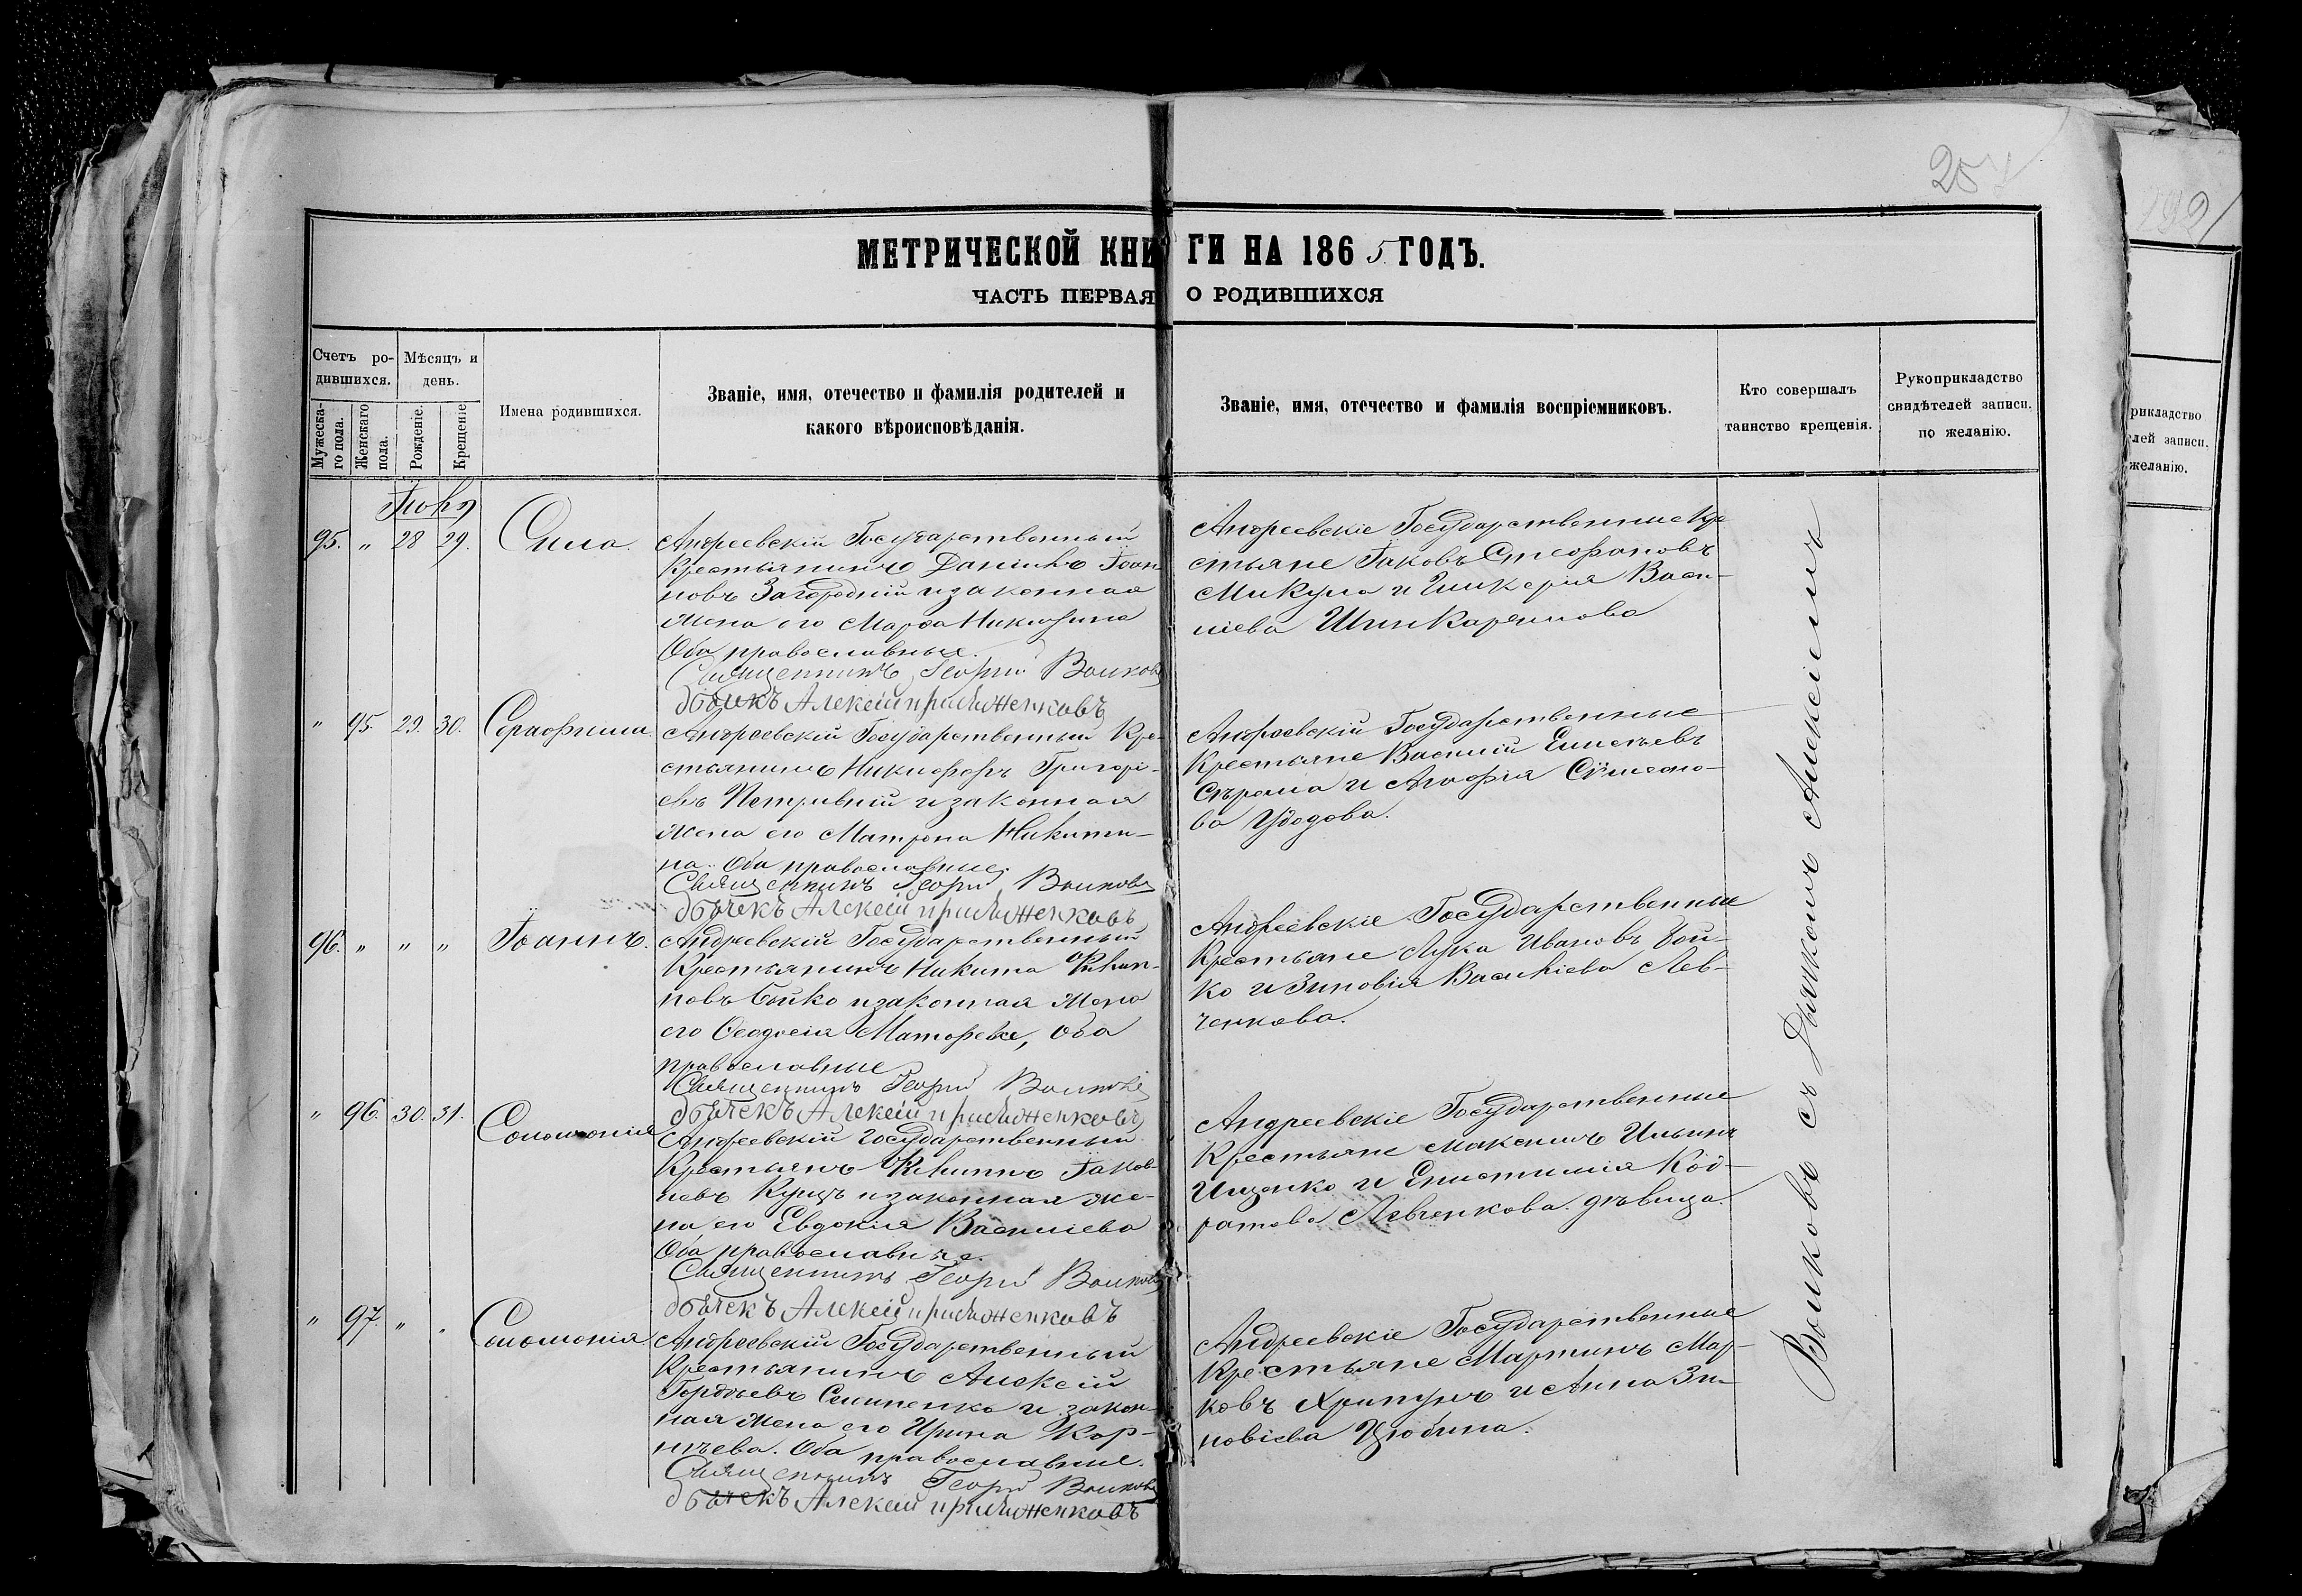 207
МЕТРИЧЕСКОЙ КНИГИ НА 1865 ГОДЪ.
ЧАСТЬ ПЕРВАЯ О РОДИВШИХСЯ
Счетъ ро-
дившихся.
Мѣсяцъ и
день.
Мужеска-
го пола.
Женскаго
пола.
Рожденіе.
Крещеніе
Имена родившихся.
Званіе, имя, отечество и фамилія родителей и
какого вѣроисповѣданія.
Званіе, имя, отечество и фамилія воспріемниковъ.
Кто совершалъ
таинство крещенія.
Рукоприкладство
свидѣтелей записи
по желанію.
95. „ 28 29. Сила.
Андреевскій Государственный
Крестьянинъ Даніилъ Іоан
новъ Загородній и законная
жена его Марфа Никифорова
Оба православные.
Священникъ Георгій Волковъ
Алексій
Андреевскіе Государственные Кре
стьяне Іаковъ Стефановъ
Микула и Гликерія Васи-
ліева Шинкаренкова
„ 95. 29. 30. Серафима
Андреевскій Государственный Кре-
стьянинъ Никифоръ Григорі-
евъ и законная
жена его Матрона Никити-
на. Оба православные.
Священникъ Георгій Волковъ
Алексій
Андреевскій Государственные
Крестьяне Василій Елисеевъ
и Агафія Симеоно-
ва Удодова.
96. „ „ „ Іоаннъ.
Андреевскій Государственный
Крестьянинъ Никита Филип-
повъ Бойко и законная жена
его Ѳеодосія Матофеева, оба
православные
Священникъ Георгій Волковъ
Алексій
Андреевскіе Государственные
Крестьяне Лука Ивановъ Бой-
ко и Зиновія Василіева Лев-
ченкова.
„ 96. 30. 31. Соломонія
Андреевскій Государственный
Крестьянъ Филиппъ Іаков-
левъ Куцъ и законная же-
на его Евдокія Василіева
Оба православные.
Священникъ Георгій Волковъ
Алексій
Андреевскіе Государственные
Крестьяне Максимъ Ильинъ
Ищенко и Епистимія Код-
ратова Левченкова. дѣвица.
„ 97. „ „ Соломонія.
Андреевскій Государственный
Крестьянинъ Алексій
Гордѣевъ Семипенко и закон-
ная жена его Ирина Кор-
нѣева. Оба православные.
Священникъ Георгій Волковъ
Алексій
Андреевскіе Государственные
Крестьяне Мартинъ Мар-
ковъ Хрипунъ и Анна Зи-
новіева Цюбина.
Волковъ съ Дьячкомъ Алексіемъ
192
рикладство
лей записи.
желанію.